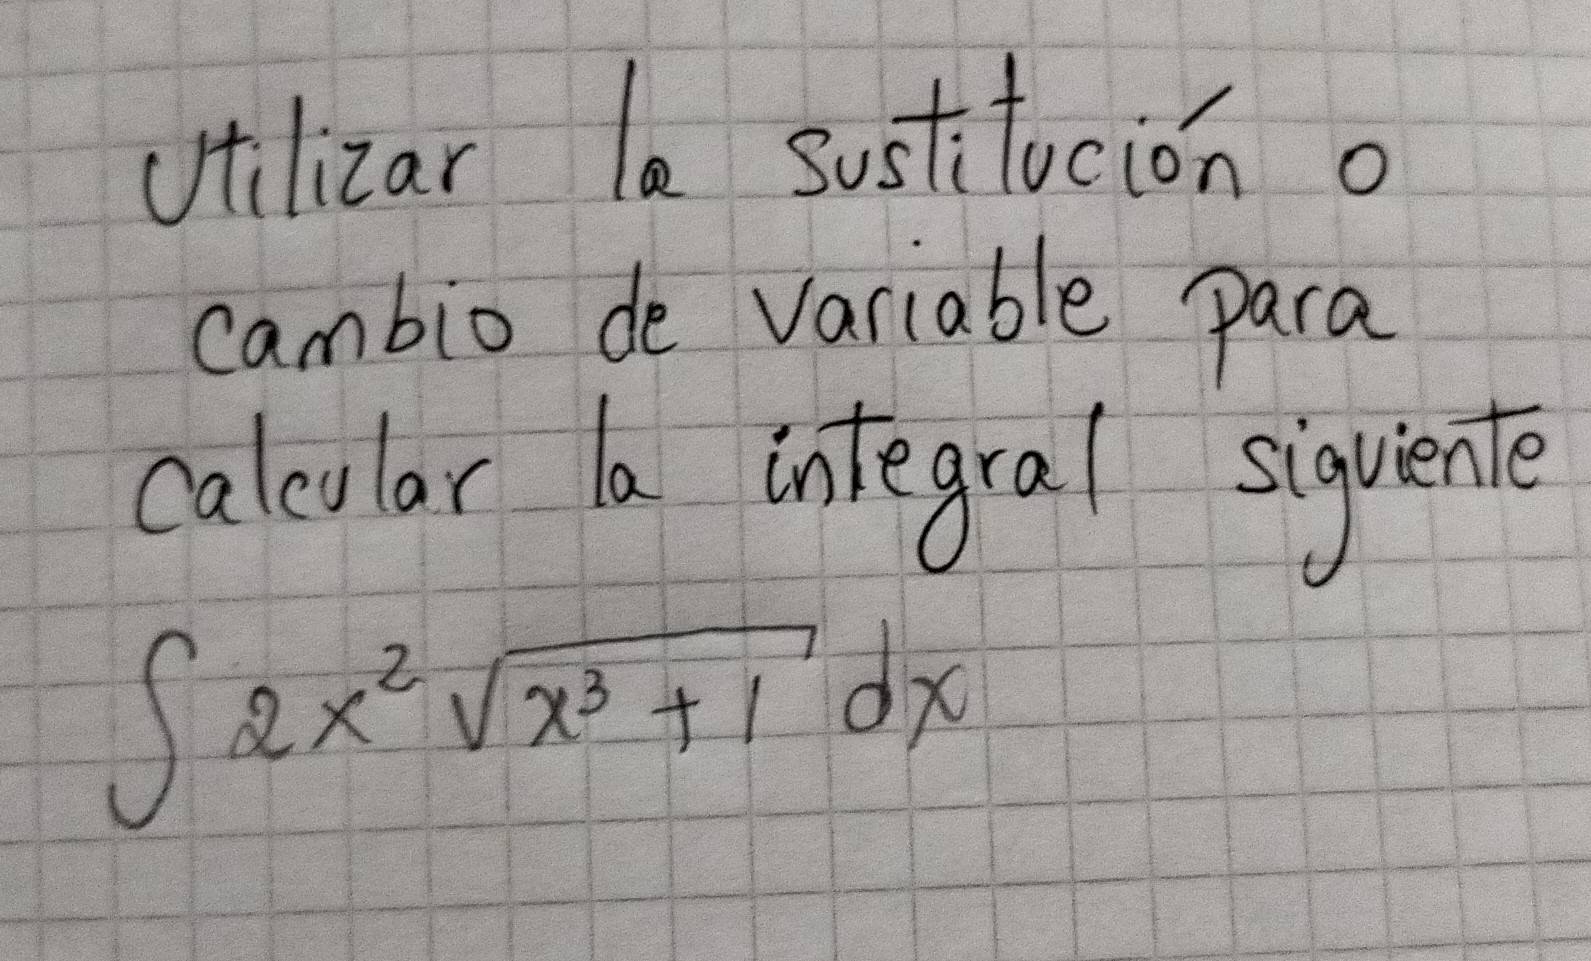 Utilizar la sustitución o
cambio de variable para
calcular la integral siguiente
∫ 2x² √(x³ + 1) dx